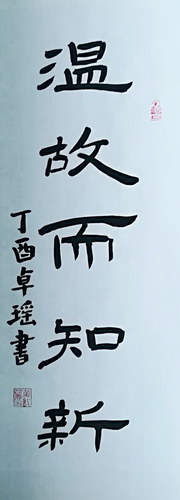 温故而知新
丁酉卓瑶書